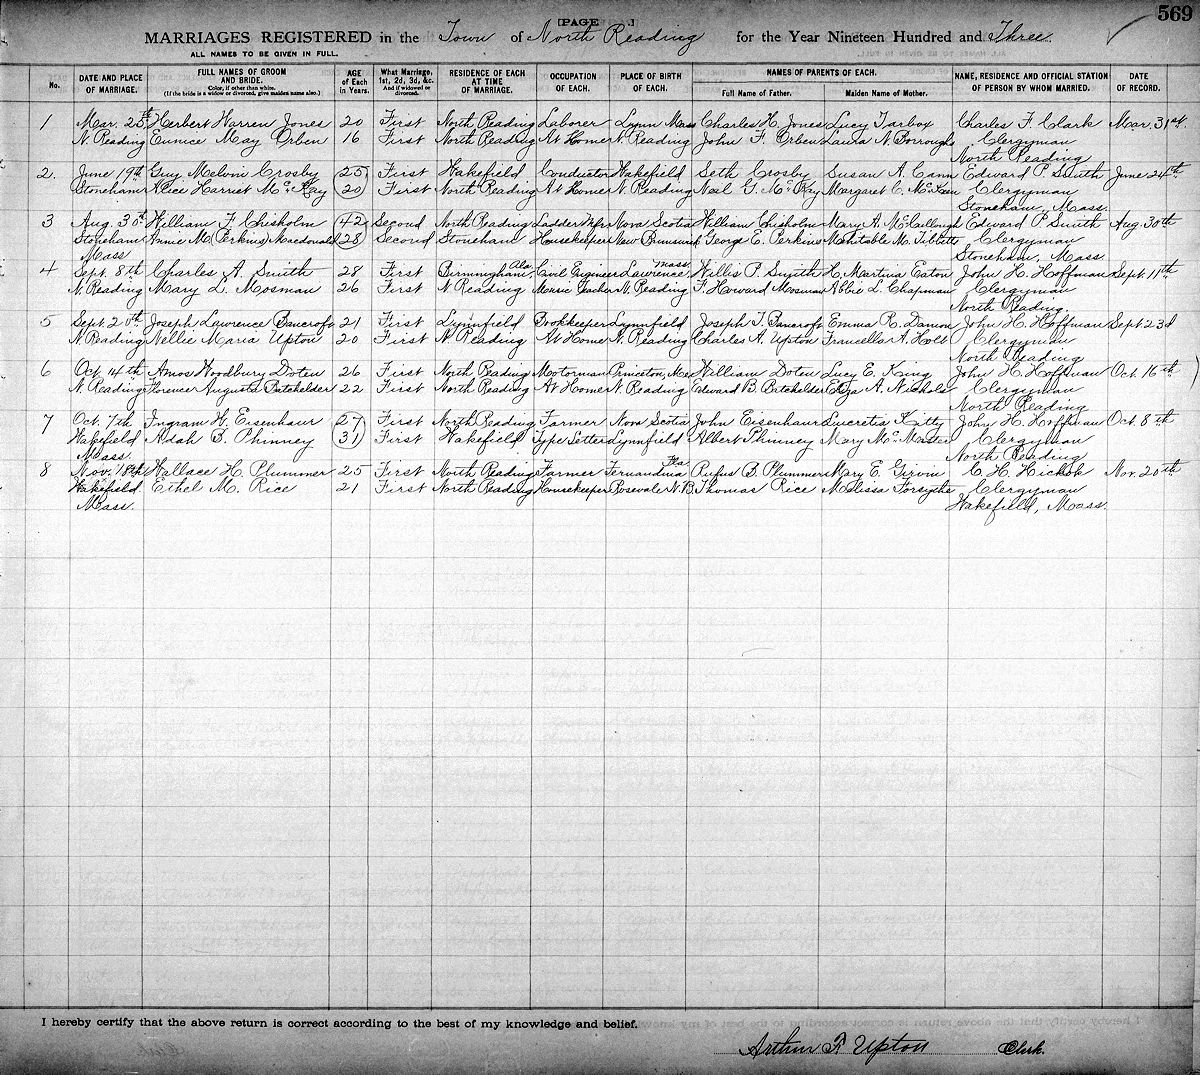 569
[PAGE ]
MARRIAGES REGISTERED in the Town of North Reading for the Year Nineteen Hundred and Three.
ALL NAMES TO BE GIVEN IN FULL.
No. DATE AND PLACE OF MARRIAGE. FULL NAMES OF GROOM AND BRIDE. Color, if other than white. (If the bride is a widow or divorced, give maiden name also.) AGE of Each in Years. What Marriage, 1st, 2d, 3d, &c. And if widowed or divorced. RESIDENCE OF EACH AT TIME OF MARRIAGE. OCCUPATION OF EACH. PLACE OF BIRTH OF EACH. NAMES OF PARENTS OF EACH. Full Name of Father. Maiden Name of Mother. NAME, RESIDENCE AND OFFICIAL STATION OF PERSON BY WHOM MARRIED. DATE OF RECORD.
1 Mar. 25th Herbert Warren Jones 20 First North Reading Laborer Lynn Mass Charles H. Jones Lucy Tarbox Charles F. Clark Mar. 31st.
N. Reading Eunice May Orben 16 First North Reading At Home N. Reading John F. Orben Laura N. Burroughs Clergyman
North Reading
2. June 19th Guy Melvin Crosby 25 First Wakefield Conductor Wakefield Seth Crosby Susan A. Cann Edward P. Smith June 24th
Stoneham Alice Harriet McKay 20 First North Reading At Home N. Reading Neil G. McKay Margaret C. McKeen Clergyman
Stoneham, Mass.
3 Aug. 30th William F. Chisholm 42 Second North Reading Ladder Mfr Nova Scotia William Chisholm Mary A. McCullugh Edward P. Smith Aug. 30th
Stoneham Annie M. (Perkins) Macdonald 28 Second Stoneham Housekeeper New Brunswick George E. Perkins Mehitable M. Tibbetts Clergyman
Mass Stoneham, Mass.
4 Sept. 8th Charles A. Smith 28 First Birmingham Ala Civil Engineer Lawrence Mass Willis P. Smith H. Martina Eaton John H. Hoffman Sept. 11th
N. Reading Mary L. Mosman 26 First N Reading Music Teacher N. Reading F. Howard Mosman Abbie L. Chapman Clergyman
North Reading
5 Sept. 20th Joseph Lawrence Bancroft 21 First Lynnfield Bookkeeper Lynnfield Joseph T. Bancroft Emma R. Damon John H. Hoffman Sept 23d
N Reading Nellie Maria Upton 20 First N Reading At Home N. Reading Charles A. Upton Francella A. Holt Clergyman
North Reading
6 Oct. 14th Amos Woodbury Doten 26 First North Reading Motorman Princeton, Me William Doten Lucy E. King John H. Hoffman Oct. 16th
N. Reading Florence Augusta Batchelder 22 First North Reading At Home N. Reading Edward B. Batchelder Eliza A. Nichols Clergyman
North Reading
7 Oct. 7th Ingram H. Eisenhaur 27 First North Reading Farmer Nova Scotia John Eisenhaur Lucretia Kitty John H. Hoffman Oct. 8th
Wakefield Aldah B. Phinney 31 First Wakefield Type Setter Lynnfield Albert Phinney Mary McMaster Clergyman
Mass. North Reading
8 Nov. 18th Wallace H. Plummer 25 First North Reading Farmer Fernandina Fla Rufus B. Plummer Mary E. Girvin C. H. Hickok Nov. 20th
Wakefield Ethel M. Rice 21 First North Reading Housekeeper Rosevale N.B. Thomas Rice Melissa Forsythe Clergyman
Mass. Wakefield, Mass.
I hereby certify that the above return is correct according to the best of my knowledge and belief.
Arthur F. Upton Clerk.